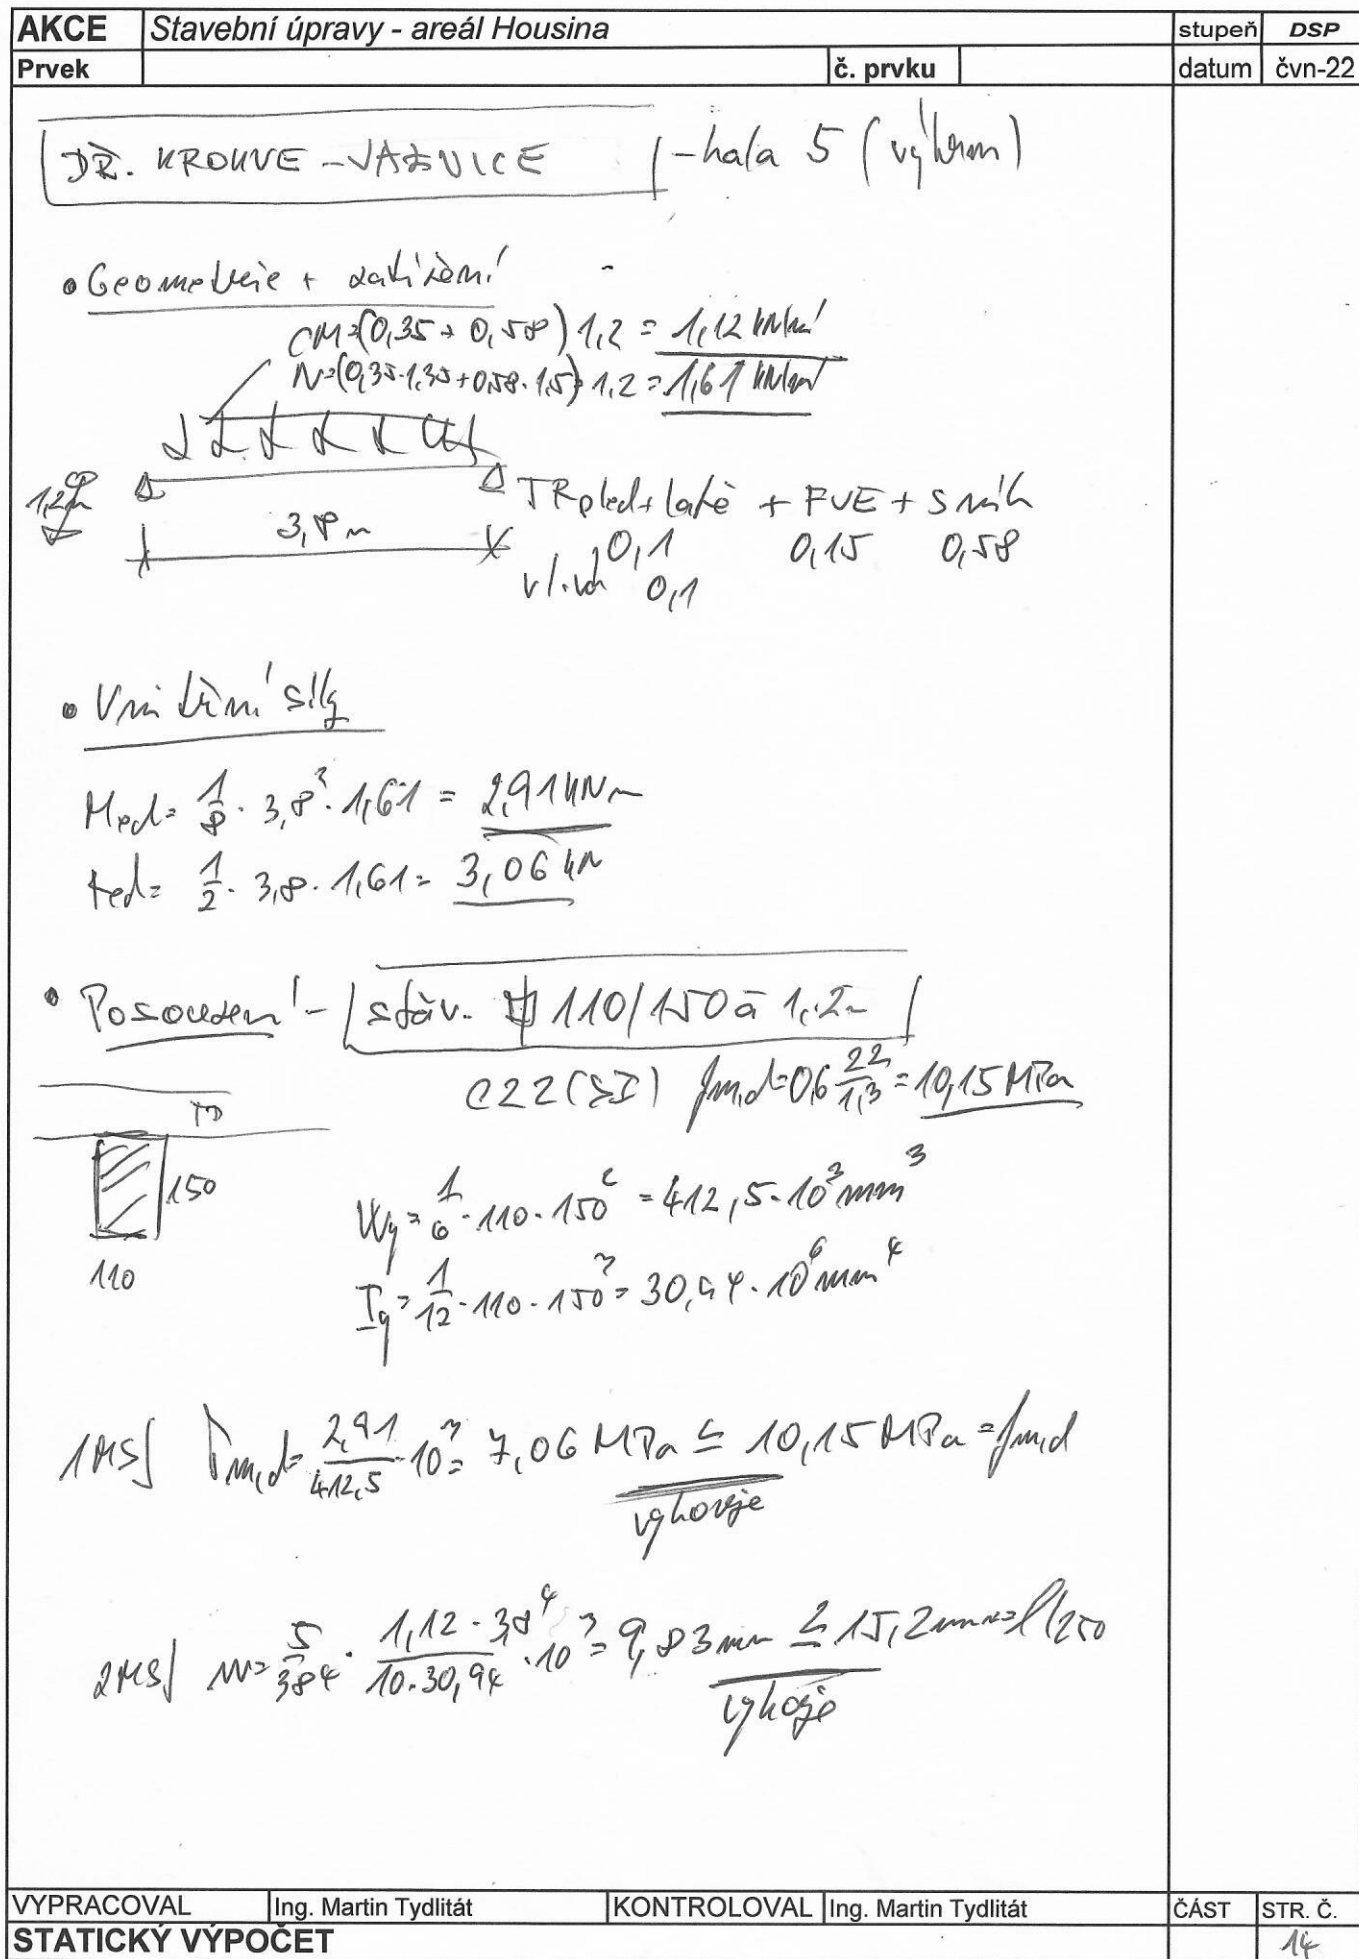 AKCE Stavební úpravy - areál Housina stupeň DSP
Prvek č. prvku datum čvn-22
DŘ. KROKVE - VAZNICE - hala 5 (výkrm)
• Geometrie + zatížení
CM=(0,35+0,58)1,2 = 1,12 kN/m'
N=(0,35·1,35+0,58·1,5)·1,2 = 1,61 kN/m'
1,2
3,8 m
TRpled+latě + FVE + sníh
0,1 0,15 0,58
0,1
• Vnitřní síly
Med= 1/8 · 3,8² · 1,61 = 2,91 kNm
1/2 · 3,8 · 1,61 = 3,06 kN
• Posouzení - stáv. 110/150 ā 1,2m
C22 (SI) fm,d=0,6 22/1,3 = 10,15 MPa
150
110
Wy= 1/6 · 110 · 150² = 412,5 · 10³ mm³
Iy= 1/12 · 110 · 150³ = 30,94 · 10⁶ mm⁴
1MS σm,d= 2,91/412,5 · 10³ = 7,06 MPa ≤ 10,15 MPa = fm,d
vyhovuje
2MS w= 5/384 · 1,12 · 3,8⁴/10·30,94 · 10³ = 9,83 mm ≤ 15,2 mm = l/250
vyhovuje
VYPRACOVAL Ing. Martin Tydlitát KONTROLOVAL Ing. Martin Tydlitát ČÁST STR. Č.
STATICKÝ VÝPOČET 14